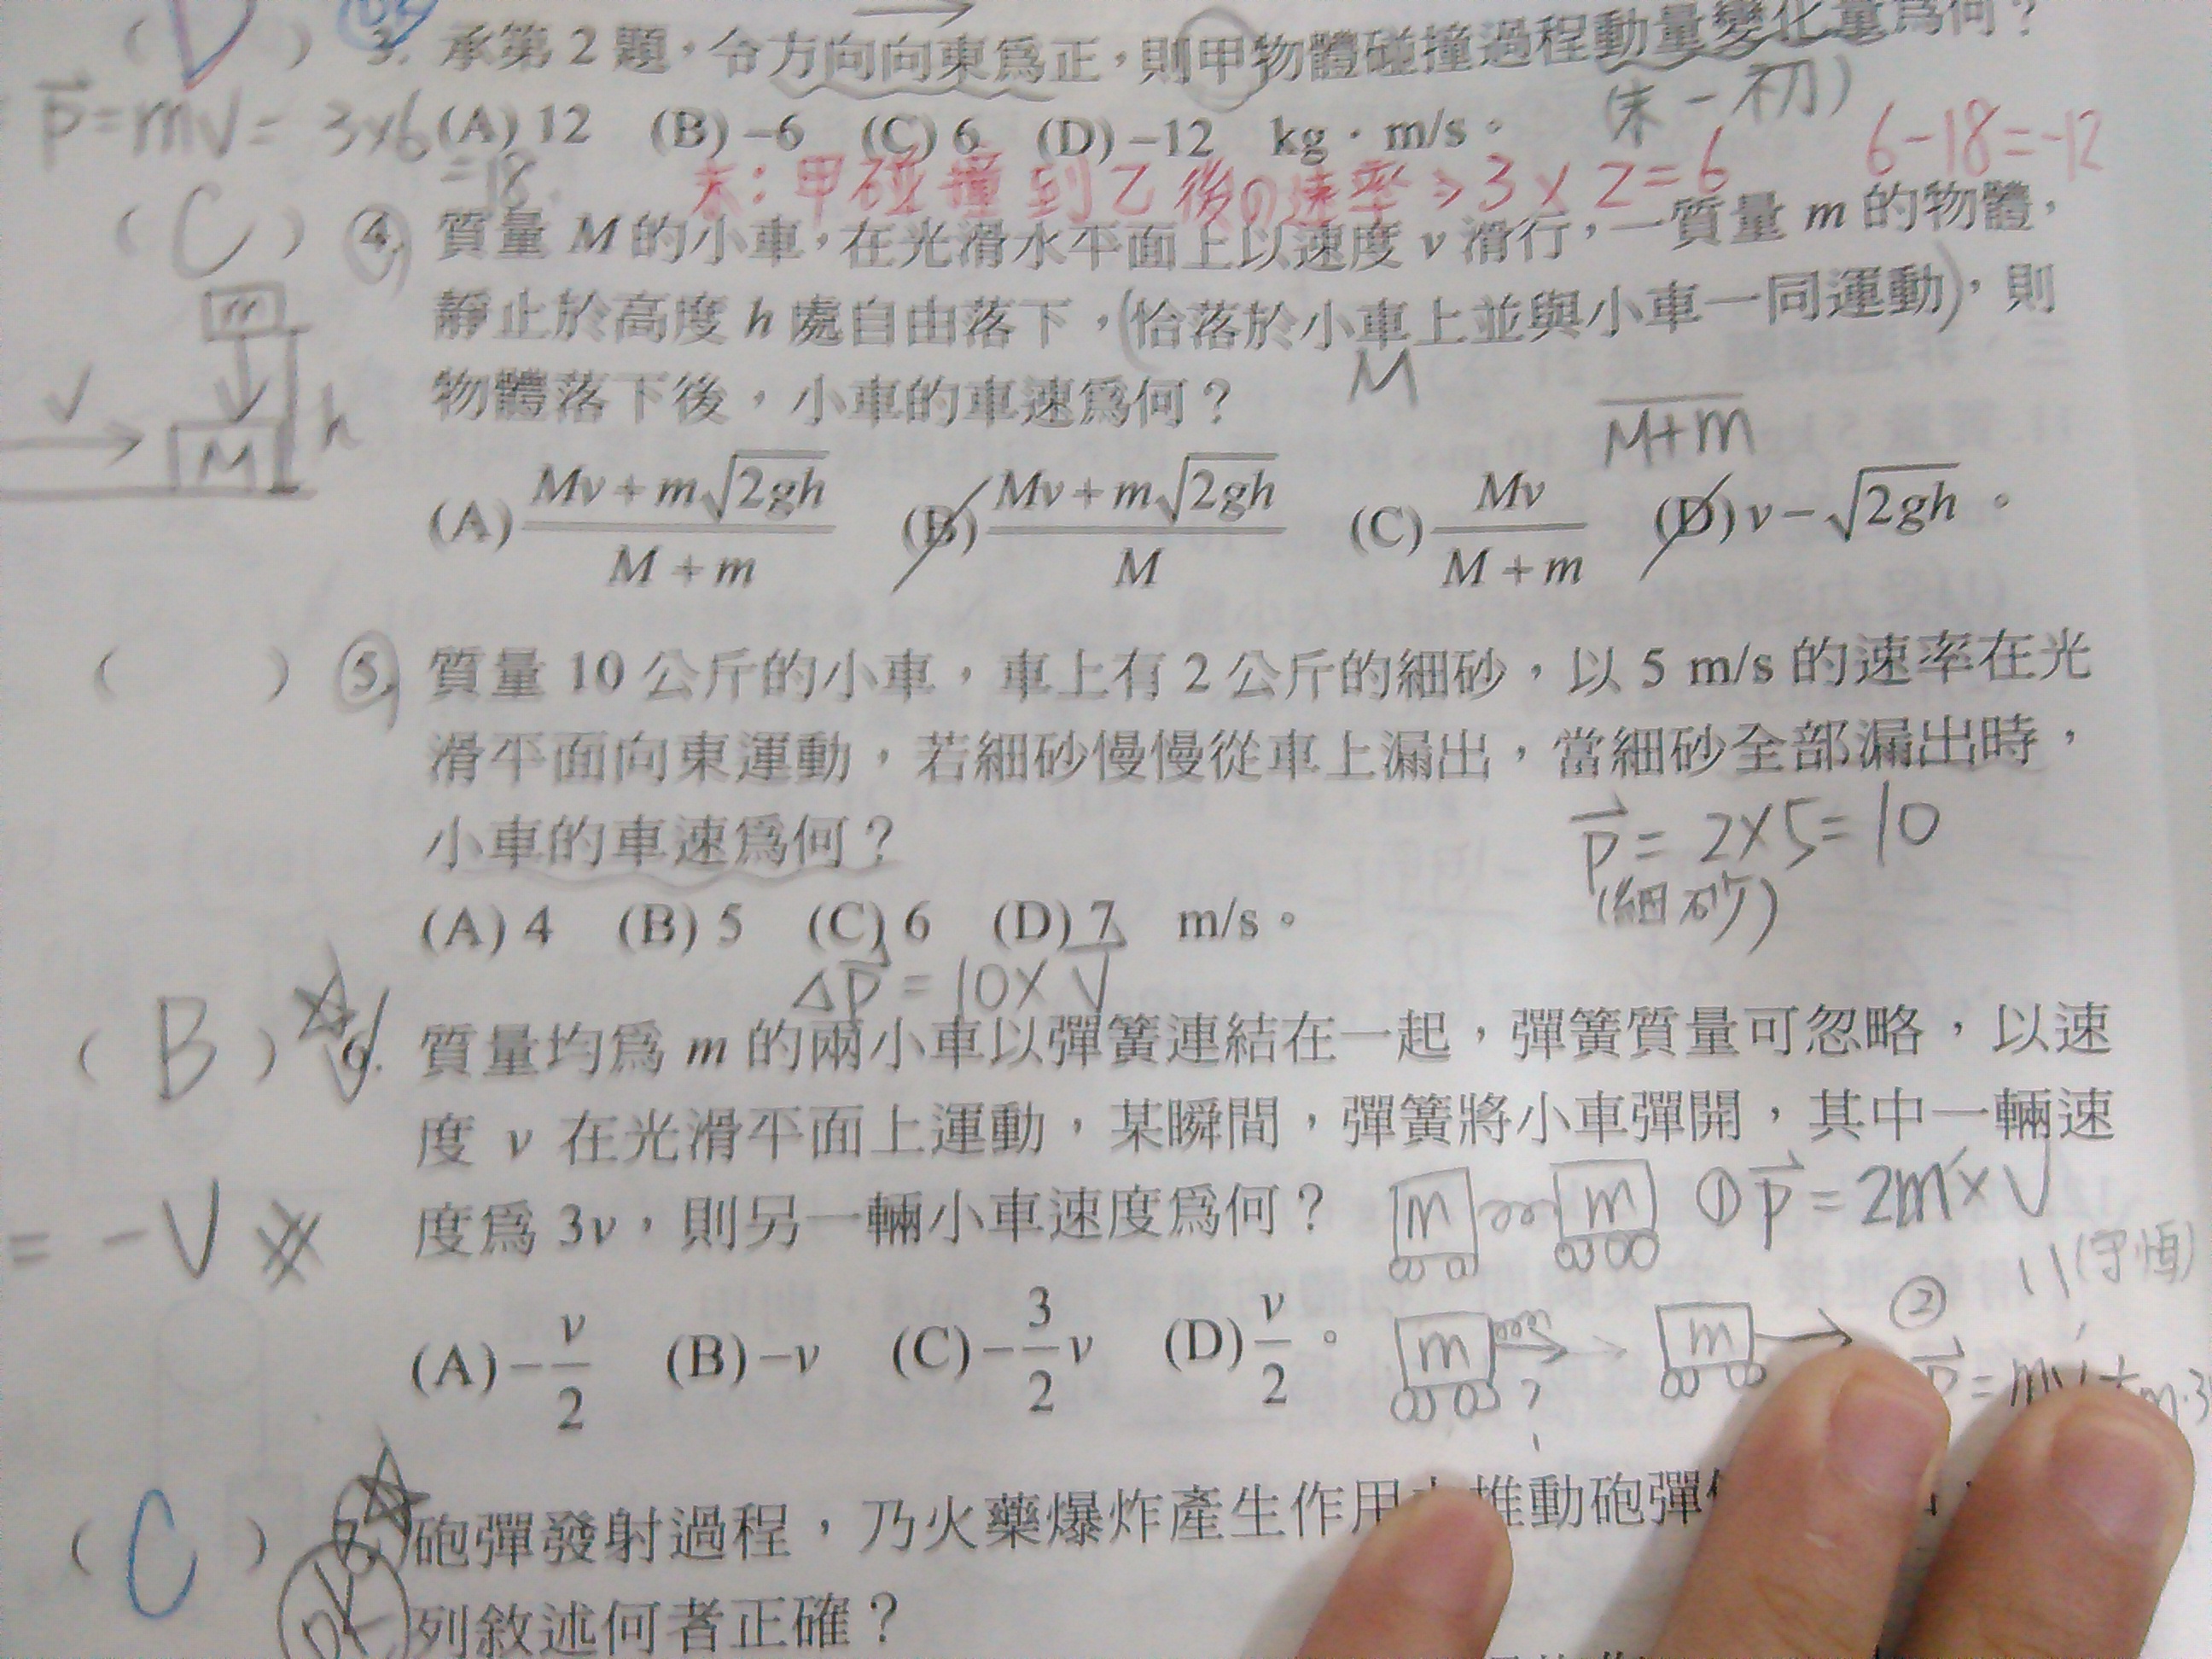 ( D ) 3. 承第2題，令方向向東為正，則甲物體碰撞過程動量變化量為何？
(末-初)
p=mv= 3×6
=18
(A) 12 (B) -6 (C) 6 (D) -12 kg·m/s。
末:甲碰撞到乙後の速率⇒3×2=6
6-18=-12
( C ) 4. 質量 M 的小車，在光滑水平面上以速度 v 滑行，一質量 m 的物體，
靜止於高度 h 處自由落下，(恰落於小車上並與小車一同運動)，則
物體落下後，小車的車速為何？
m
v
M
h
M
M+m
(A) (Mv+m√2gh)/(M+m) (B) (Mv+m√2gh)/M (C) Mv/(M+m) (D) v-√2gh。
( ) 5. 質量 10 公斤的小車，車上有 2 公斤的細砂，以 5 m/s 的速率在光
滑平面向東運動，若細砂慢慢從車上漏出，當細砂全部漏出時，
小車的車速為何？
p= 2×5=10
(細砂)
(A) 4 (B) 5 (C) 6 (D) 7 m/s。
Δp = 10×V
( B ) 6. 質量均為 m 的兩小車以彈簧連結在一起，彈簧質量可忽略，以速
度 v 在光滑平面上運動，某瞬間，彈簧將小車彈開，其中一輛速
度為 3v，則另一輛小車速度為何？
m m ①p=2m×V
= -V
(守恆)
(A) -v/2 (B) -v (C) -3/2 v (D) v/2。
m m ②
?
( C ) 7. 砲彈發射過程，乃火藥爆炸產生作用 推動砲彈
列敘述何者正確？